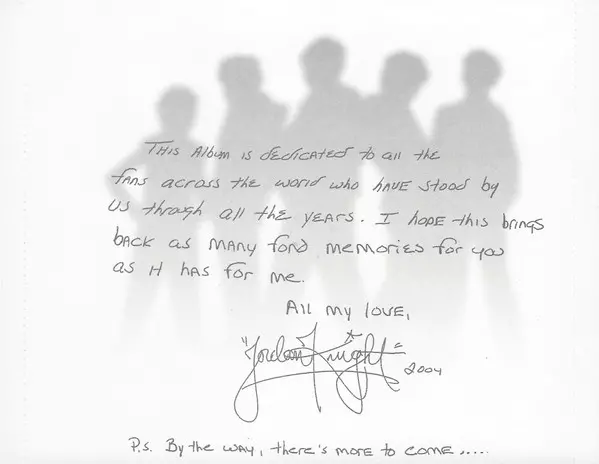 This Album is dedicated to all the
fans across the world who have stood by
us through all the years. I hope this brings
back as many fond memories for you
as it has for me.
All my love,
"Jordan Knight"
2004
P.S. By the way, there's more to come.....